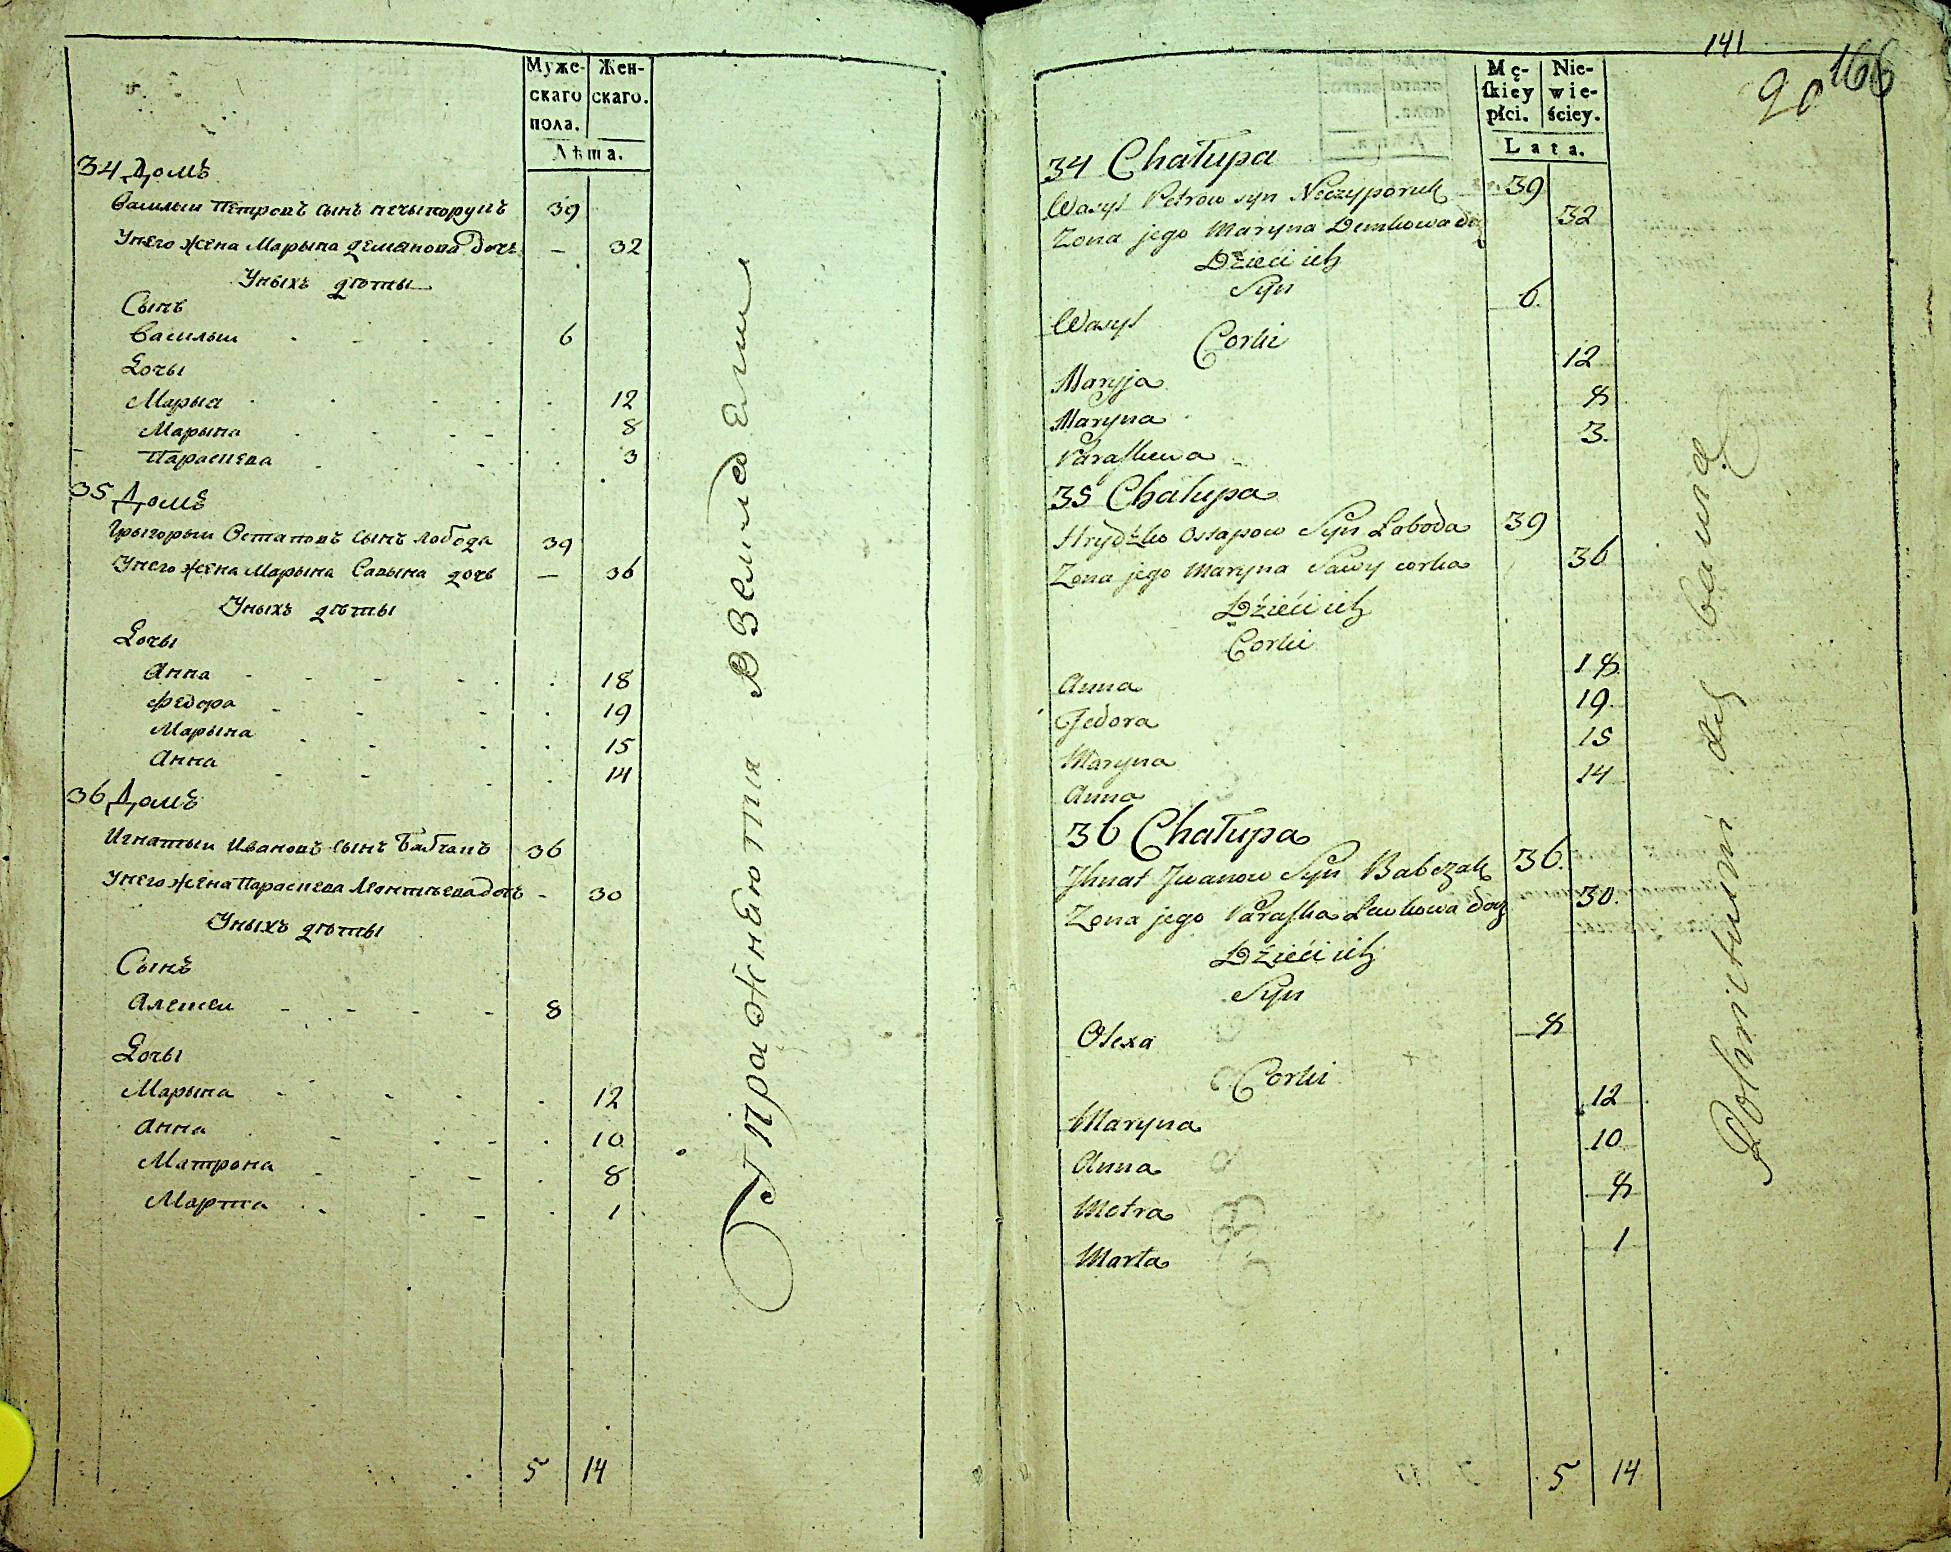 Муже-
скаго
пола.
Жен-
скаго.
Лѣта.
34 Домъ
Василыи Петровъ сынъ нечыпорукъ 39
Унего жена Марына демянова дочъ — 32
Уныхъ дѣты
Сынъ
Василыи 6
Дочы
Марыа 12
Марына 8
Параскева 3
35 Домъ
Грыгорыи Остаповъ сынъ лобода 39
Унего жена Марына Савына дочъ — 36
Уныхъ дѣты
Дочы
Анна 18
Федора 19
Марына 15
Анна 14
36 Домъ
Игнатыи Ивановъ сынъ Бабчакъ 36
Унего жена Параскева Леонтъева дочъ - 30
Уныхъ дѣты
Сынъ
Алексеи 8
Дочы
Марына 12
Анна 10
Матрона 8
Марта 1
5 14
Упражнѣются В Земледелии
141
90 166
Mę-
skiey
płci.
Nie-
wie-
ściey.
Lata.
34 Chałupa
Wasyl Petrow syn Neczyporuk 39
Zona jego Maryna Demkowa 32
Dzieci ich
Syn
Wasyl 6.
Corki
Maryja 12
Maryna 8
Paraskewa 3.
35 Chałupa
Hrydźko Ostapow Syn Łoboda 39
Zona jego Maryna Sawy corka 36
Dźieći ich
Corki
Anna 18
Fedora 19.
Maryna 15
Anna 14
36 Chałupa
Ihnat Jwanow Syn Babczak 36.
Zona jego Paraska Lewkowa 30.
Dźieći ich
Syn
Olexa 8
Corki
Maryna 12
Anna 10
Motra 8
Marta 1
5 14
Rolnictwem się bawią